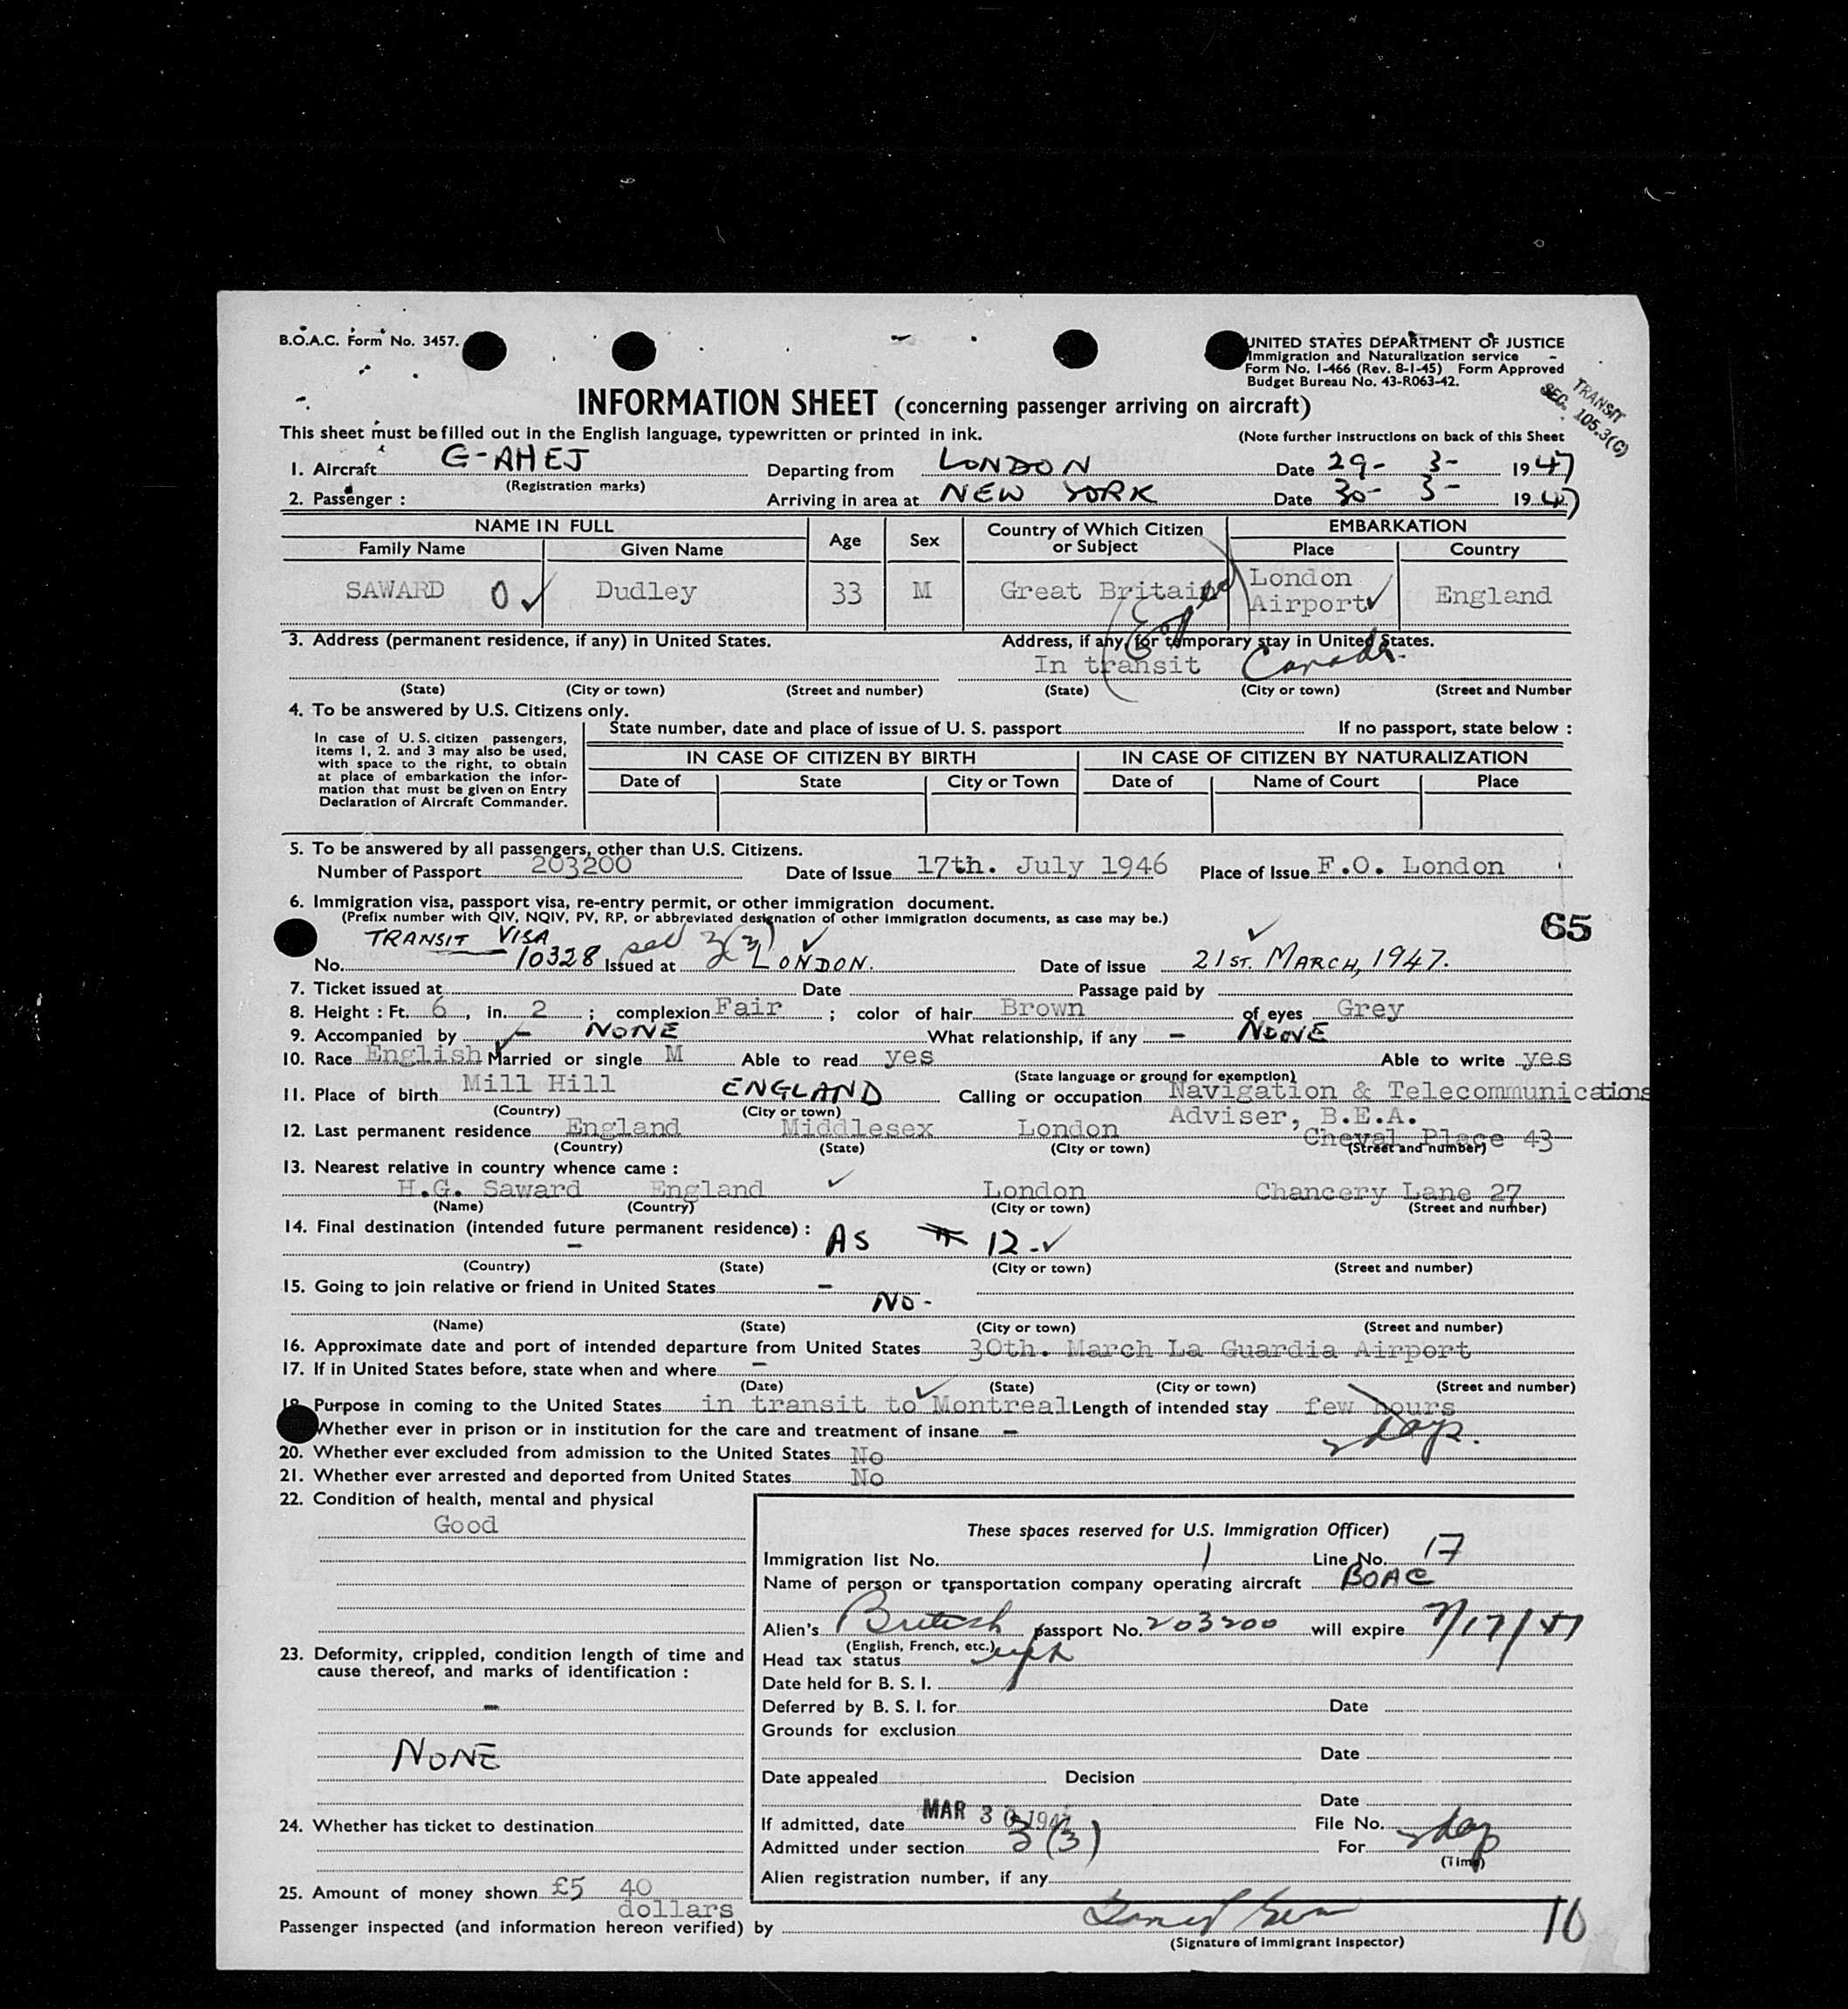 B.O.A.C. Form No. 3457.
UNITED STATES DEPARTMENT OF JUSTICE
Immigration and Naturalization service
Form No. I-466 (Rev. 8-1-45) Form Approved
Budget Bureau No. 43-R063-42.
TRANSIT
SEC. 105.3(C)
INFORMATION SHEET (concerning passenger arriving on aircraft)
This sheet must be filled out in the English language, typewritten or printed in ink. (Note further instructions on back of this Sheet
1. Aircraft G-AHEJ Departing from LONDON Date 29- 3- 1947
(Registration marks)
2. Passenger : Arriving in area at NEW YORK Date 30- 3- 1947
NAME IN FULL Age Sex Country of Which Citizen or Subject EMBARKATION
Family Name Given Name Place Country
SAWARD 0 ✓ Dudley 33 M Great Britain London Airport ✓ England
3. Address (permanent residence, if any) in United States. Address, if any, for temporary stay in United States.
In transit Canada.
(State) (City or town) (Street and number) (State) (City or town) (Street and Number
4. To be answered by U.S. Citizens only.
In case of U.S. citizen passengers, items 1, 2. and 3 may also be used, with space to the right, to obtain at place of embarkation the information that must be given on Entry Declaration of Aircraft Commander.
State number, date and place of issue of U. S. passport If no passport, state below :
IN CASE OF CITIZEN BY BIRTH IN CASE OF CITIZEN BY NATURALIZATION
Date of State City or Town Date of Name of Court Place
5. To be answered by all passengers, other than U.S. Citizens.
Number of Passport 203200 Date of Issue 17th. July 1946 Place of Issue F.O. London
6. Immigration visa, passport visa, re-entry permit, or other immigration document.
(Prefix number with QIV, NQIV, PV, RP, or abbreviated designation of other immigration documents, as case may be.)
65
TRANSIT VISA
No. 10328 Issued at 3(3) LONDON. Date of issue 21ST. MARCH, 1947.
7. Ticket issued at Date Passage paid by
8. Height : Ft. 6, in. 2 ; complexion Fair ; color of hair Brown of eyes Grey
9. Accompanied by - NONE What relationship, if any - NONE
10. Race English Married or single M Able to read yes Able to write yes
(State language or ground for exemption)
11. Place of birth Mill Hill ENGLAND Calling or occupation Navigation & Telecommunications
(Country) (City or town) Adviser, B.E.A.
12. Last permanent residence England Middlesex London Cheval Place 43
(Country) (State) (City or town) (Street and number)
13. Nearest relative in country whence came :
H.G. Saward England London Chancery Lane 27
(Name) (Country) (City or town) (Street and number)
14. Final destination (intended future permanent residence) : - AS # 12 - ✓
(Country) (State) (City or town) (Street and number)
15. Going to join relative or friend in United States -
NO -
(Name) (State) (City or town) (Street and number)
16. Approximate date and port of intended departure from United States 30th. March La Guardia Airport
17. If in United States before, state when and where -
(Date) (State) (City or town) (Street and number)
18. Purpose in coming to the United States in transit to Montreal Length of intended stay few hours
2 days.
Whether ever in prison or in institution for the care and treatment of insane -
20. Whether ever excluded from admission to the United States No
21. Whether ever arrested and deported from United States No
22. Condition of health, mental and physical
Good
23. Deformity, crippled, condition length of time and cause thereof, and marks of identification :
-
NONE
24. Whether has ticket to destination
25. Amount of money shown £5 40 dollars
These spaces reserved for U.S. Immigration Officer)
Immigration list No. 1 Line No. 17
Name of person or transportation company operating aircraft BOAC
Alien's British passport No. 203200 will expire 7/17/51
(English, French, etc.)
Head tax status
Date held for B. S. I.
Deferred by B. S. I. for Date
Grounds for exclusion
Date
Date appealed Decision
Date
If admitted, date MAR 30 1947 File No.
Admitted under section 3(3) For 2 days
(Time)
Alien registration number, if any
Passenger inspected (and information hereon verified) by 10
(Signature of Immigrant Inspector)